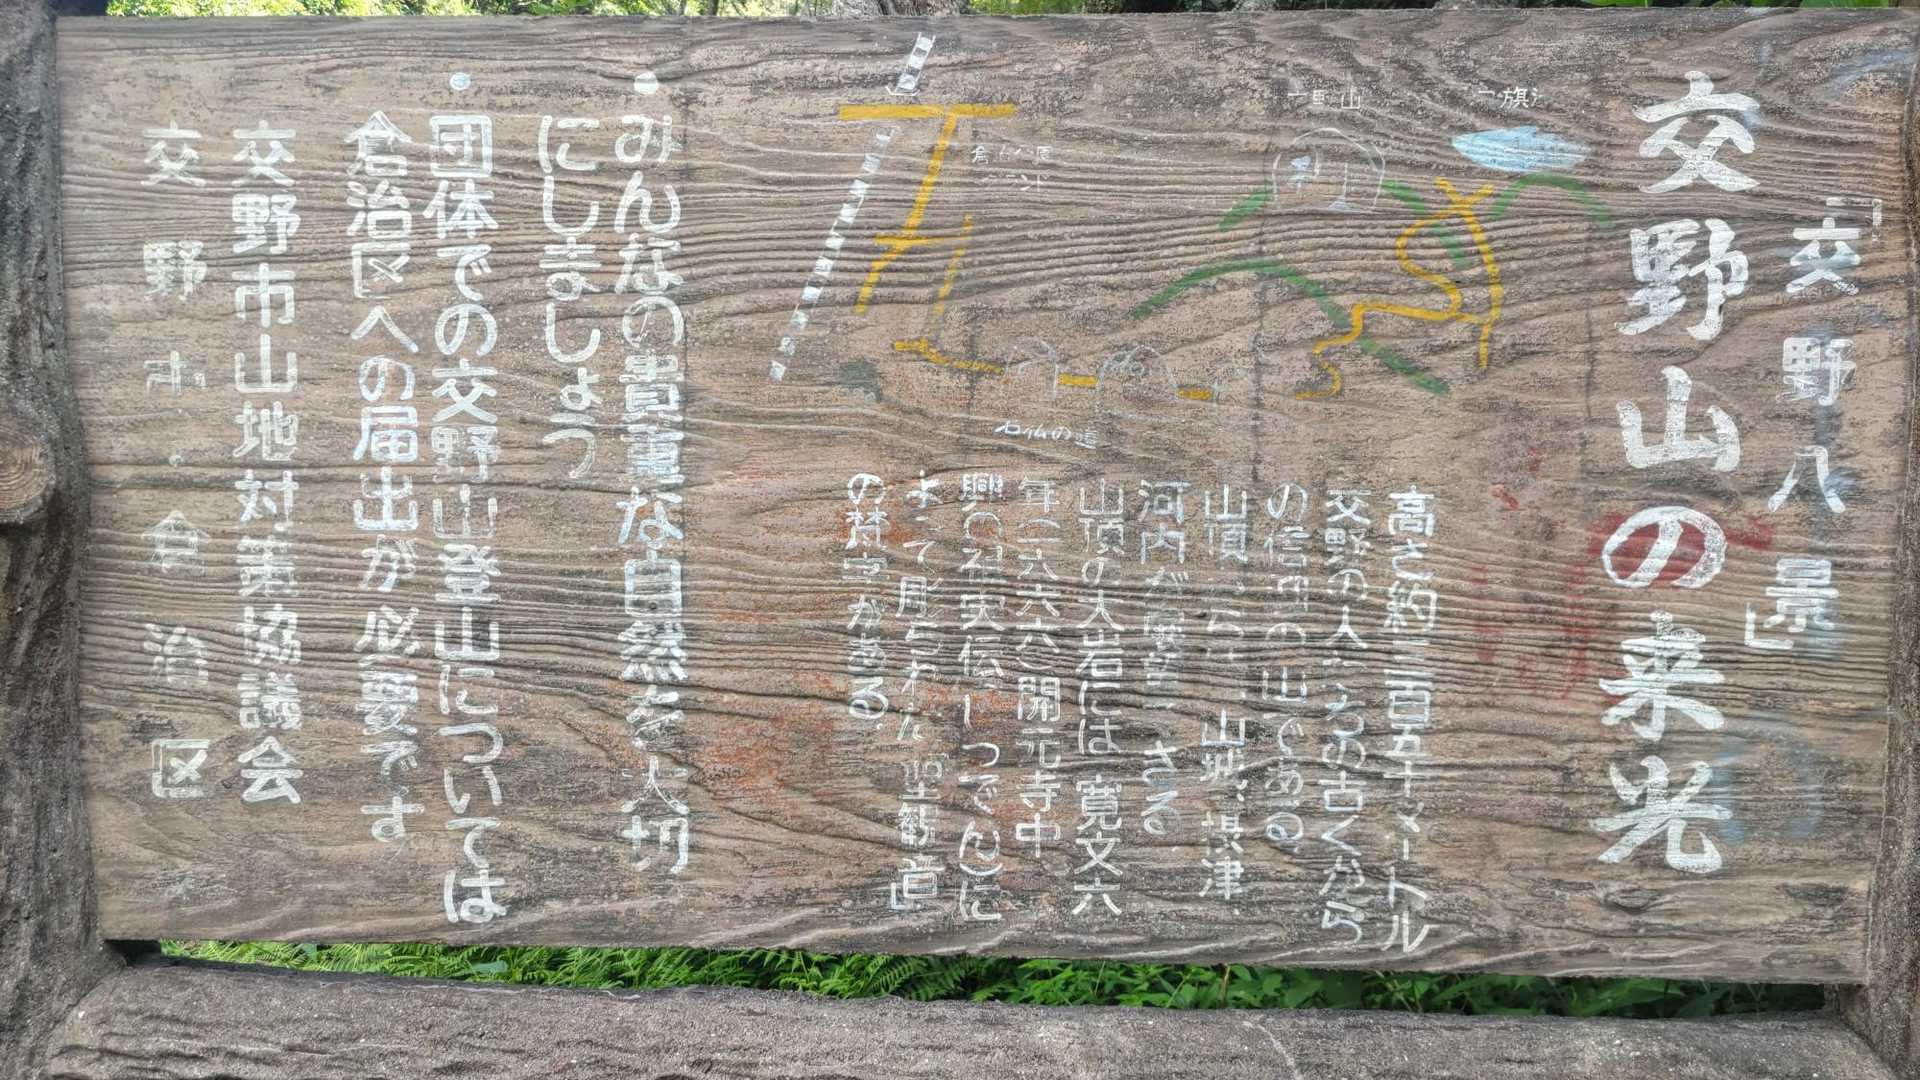 「交野八景」
交野山の来光
高さ約三百五十メートル
交野の人たちの古くから
の信仰の山である
山頂からは、山城、摂津、
河内が展望できる
山頂の大岩には 寛文六
年(一六六六)開元寺中
興の祖実伝(じつでん)に
よって彫られた「聖観音」
の梵字がある
石仏の道
みんなの貴重な自然を大切
にしましょう
団体での交野山登山については
倉治区への届出が必要です
交野市山地対策協議会
交野市・倉治区